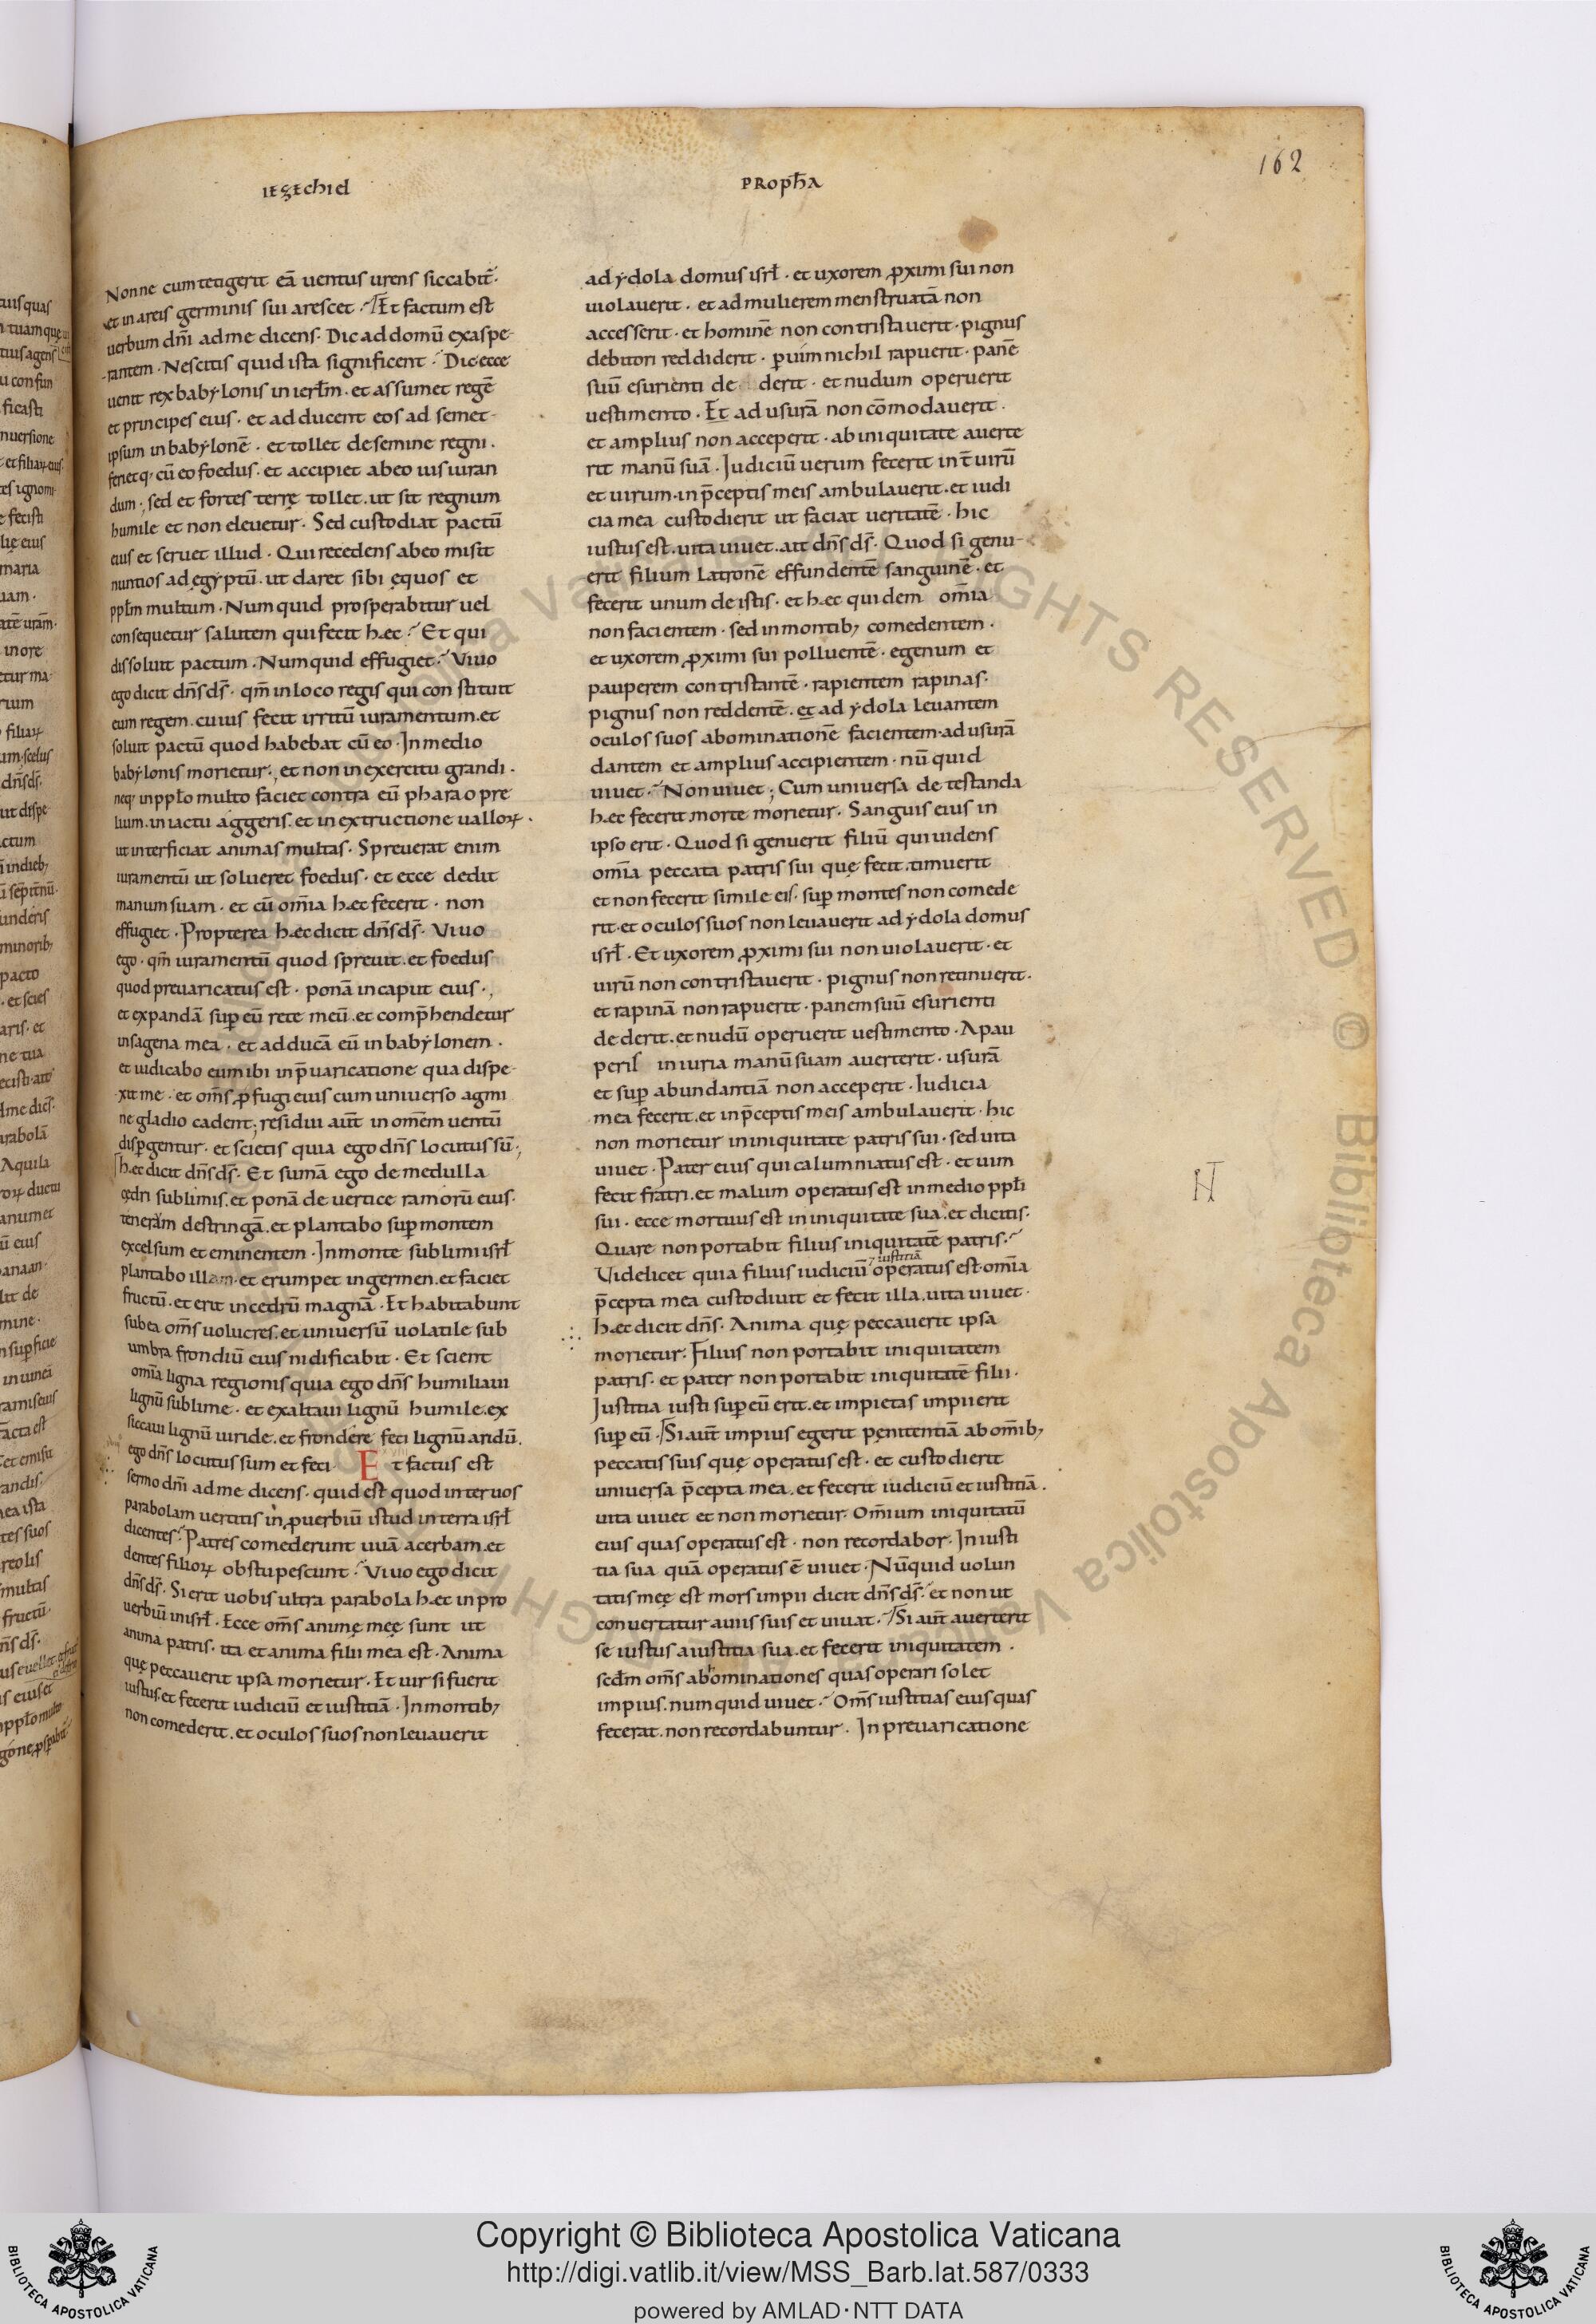 162
IEZEChIEl
PROPhA
Nonne cum tetigerit eā uentus urens siccabit̄.
et in areis germinis sui arescet. Et factum est
uerbum dn̄i ad me dicens. Dic ad domū exaspe-
rantem. Nescitis quid ista significent. Dic ecce
uenit rex babylonis in ierl̄m. et assumet regē
et principes eius. et adducent eos ad semet-
ipsum in babylonē. et tollet de semine regni.
ferietq; cū eo foedus. et accipiet ab eo iusiuran
dum; sed et fortes terrę tollet. ut sit regnum
humile et non eleuetur. Sed custodiat pactū
eius et seruet illud. Qui recedens ab eo misit
nuntios ad ęgyptū. ut daret sibi ęquos et
ppl̄m multum. Numquid prosperabitur uel
consequetur salutem qui fecit hęc. Et qui
dissoluit pactum. Numquid effugiet. Viuo
ego dicit dn̄s ds̄. qm̄ in loco regis qui constituit
eum regem. cuius fecit irritū iuramentum. et
soluit pactū quod habebat cū eo. In medio
babylonis morietur; et non in exercitu grandi.
neq; in ppl̄o multo faciet contra eū pharao pre
lium. in iactu aggeris. et in extructione ualloꝝ.
ut interficiat animas multas. Spreuerat enim
iuramentū ut solueret foedus. et ecce dedit
manum suam. et cū om̄ia hęc fecerit. non
effugiet. Propterea hęc dicit dn̄s ds̄. Viuo
ego. qm̄ iuramentū quod spreuit. et foedus
quod preuaricatus est. ponā in caput eius.,
et expandā suꝑ eū rete meū. et comp̄hendetur
in sagena mea. et adducā eū in babylonem.
et iudicabo eum ibi in p̄uaricatione qua dispe-
xit me. et om̄s ꝓfugi eius cum uniuerso agmi
ne gladio cadent; residui aūt in omēm uentū
disꝑgentur. et scietis quia ego dn̄s locutus sū;
hęc dicit dn̄s ds̄. Et sumā ego de medulla
cędri sublimis. et ponā de uertice ramorū eius.
teneram destringā. et plantabo suꝑ montem
excelsum et eminentem. In monte sublimi isrł
plantabo illam. et erumpet in germen. et faciet
fructū. et erit in cedrū magnā. Et habitabunt
sub ea om̄s uolucres. et uniuersū uolatile sub
umbra frondiū eius nidificabit. Et scient
om̄ia ligna regionis quia ego dn̄s humiliaui
lignū sublime. et exaltaui lignū humile. ex
siccaui lignū uiride. et frondere feci lignū aridū.
ego dn̄s locutus sum et feci Et factus est
sermo dn̄i ad me dicens. quid est quod inter uos
parabolam uertitis in ꝓuerbiū istud in terra isrł
dicentes. Patres comederunt uuā acerbam. et
dentes filioꝝ obstupescunt. Viuo ego dicit
dn̄s ds̄. Si erit uobis ultra parabola hęc in pro
uerbiū in isrł. Ecce om̄s animę męę sunt ut
anima patris. ita et anima filii mea est. Anima
quę peccauerit ipsa morietur. Et uir si fuerit
iustus. et fecerit iudiciū et iustitiā. In montib;
non comederit. et oculos suos non leuauerit
ad ydola domus isrł. et uxorem ꝓximi sui non
uiolauerit. et ad mulierem menstruatā non
accesserit. et hominē non contristauerit. pignus
debitori reddiderit. ꝑ uim nichil rapuerit. panē
suū esurienti de derit. et nudum operuerit
uestimento. Et ad usurā non cōmodauerit.
et amplius non acceperit. ab iniquitate auerte
rit manū suā. Iudiciū uerum fecerit int̄ uirū
et uirum. in p̄ceptis meis ambulauerit. et iudi
cia mea custodierit ut faciat ueritatē. hic
iustus est. uita uiuet. ait dn̄s ds̄. Quod si genu-
erit filium latronē effundentē sanguinē. et
fecerit unum de istis. et hęc quidem om̄ia
non facientem. sed in montib; comedentem.
et uxorem ꝓximi sui polluentē. egenum et
pauperem contristantē. rapientem rapinas.
pignus non reddentē. et ad ydola leuantem
oculos suos abominationē facientem. ad usurā
dantem et amplius accipientem. nū quid
uiuet. Non uiuet; Cum uniuersa detestanda
hęc fecerit. morte morietur. Sanguis eius in
ipso erit. Quod si genuerit filiū qui uidens
om̄ia peccata patris sui quę fecit. timuerit
et non fecerit simile eis. suꝑ montes non comede
rit. et oculos suos non leuauerit ad ydola domus
isrł. Et uxorem ꝓximi sui non uiolauerit. et
uirū non contristauerit. pignus non retinuerit.
et rapinā non rapuerit. panem suū esurienti
dederit. et nudū operuerit uestimento. A pau
peris iniuria manū suam auerterit. usurā
et suꝑabundantiā non acceperit. Iudicia
mea fecerit. et in p̄ceptis meis ambulauerit. hic
non morietur in iniquitate patris sui. sed uita
uiuet. Pater eius qui calumniatus est. et uim
fecit fratri. et malum operatus est in medio ppl̄i
sui. ecce mortuus est in iniquitate sua. et dicitis.
Quare non portabit filius iniquitatē patris.
⁊ iustitiā
Videlicet quia filius iudiciū operatus est. om̄ia
p̄cepta mea custodiuit et fecit illa. uita uiuet.
hęc dicit dn̄s. Anima quę peccauerit ipsa
morietur. Filius non portabit iniquitatem
patris. et pater non portabit iniquitatē filii.
Iustitia iusti suꝑ eū erit. et impietas impii erit
suꝑ eū. Si aūt impius egerit pęnitentiā ab om̄ib;
peccatis suis quę operatus est. et custodierit
uniuersa p̄cepta mea. et fecerit iudiciū et iustitiā.
uita uiuet et non morietur. Om̄ium iniquitatū
eius quas operatus est. non recordabor. In iusti
tia sua quā operatus ē uiuet. Nūquid uolun
tatis męę est mors impii dicit dn̄s ds̄. et non ut
conuertatur a uiis suis et uiuat. Si aūt auerterit
se iustus a iustitia sua. et fecerit iniquitatem.
scđm om̄s abhominationes quas operari solet
impius. numquid uiuet. Om̄s iustitias eius quas
fecerat. non recordabuntur. In preuaricatione
Copyright © Biblioteca Apostolica Vaticana
http://digi.vatlib.it/view/MSS_Barb.lat.587/0333
powered by AMLAD·NTT DATA